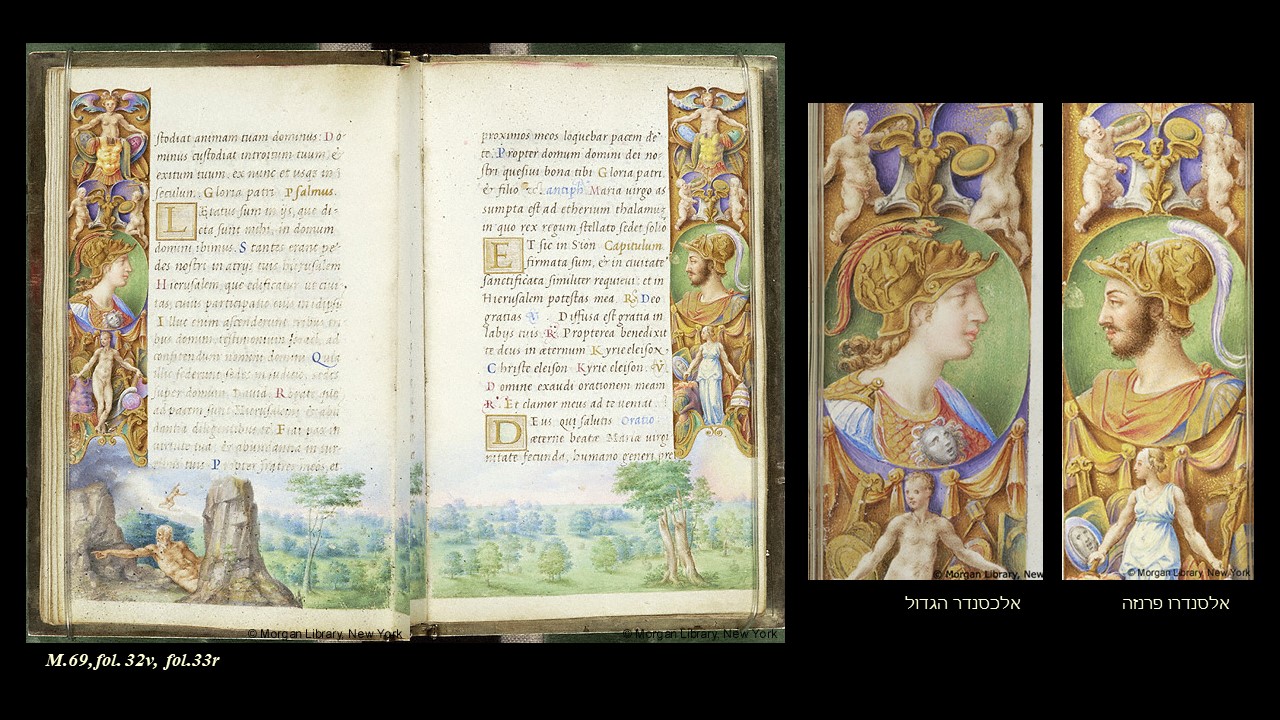 stodiat animam tuam dominus: Do
minus custodiat introitum tuum, &
exitum tuum. ex nunc et usque in
seculum. Gloria patri Psalmus.
Lætatus sum in ijs, que di-
cta sunt mihi, in domum
domini ibimus. Stantes erant pe-
des nostri in atrijs tuis hierusalem
Hierusalem, que edificatur ut civi
tas, cuius participatio eius in idipsū
Illuc enim ascenderunt tribus,
bus domini, testimonium ad
confitendum nomini domini Quia
illic sederunt sedes in judicio, sedes
super domum
proximos meos loquebar pacem de
te. Propter domum domini dei no-
stri quesivi bona tibi Gloria patri.
& filio antiph Maria virgo as
sumpta est ad etherium thalamū
in quo rex regum stellato sedet solio
ET sic in Sion Capitulum
firmata sum, & in civitate
sanctificata similiter requievi: et in
Hierusalem potestas mea R. Deo
gratias V. Diffusa est gratia in
labijs tuis R. Propterea benedixit
te deus in æternum Kyrie eleison.
Christe eleison Kyrie eleison. V.
Domine exaudi orationem meam
R. Et clamor meus ad te veniat
Deus qui salutis Oratio
æterne beatæ Mariæ virgi
nitate fecunda, humano generi pre
© Morgan Library, New York
© Morgan Library, New York
M.69, fol. 32v, fol.33r
© Morgan Library, New
© Morgan Library, New York
אלכסנדר הגדול
אלסנדרו פרנזה